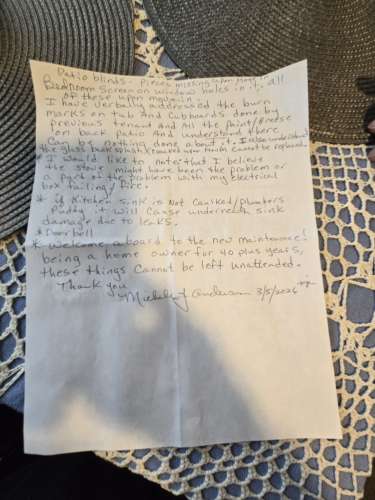 Patio blinds - Pieces missing upon move in
Bedroom Screen on window holes in it. all
of these upon move in
I have verbally addressed the burn
marks on tub And Cubboards done by
previous tenant And All the paint/
on back patio And understand there
Can be nothing done about it. I also understand
the glass back splash Cracked upon move Cannot be replaced.
* I would like to note that I believe
the stove might have been the problem or
a part of the problem with my electrical
box failing/fire.
* if Kitchen sink is Not Caulked/plumbers
Putty it will Cause underneath sink
damage due to leaks.
* Doorbell
* Welcome aboard to the new maintenance!
being a home owner for 40 plus years,
these things Cannot be left unattended.
Thank you
Anderson 3/5/2026